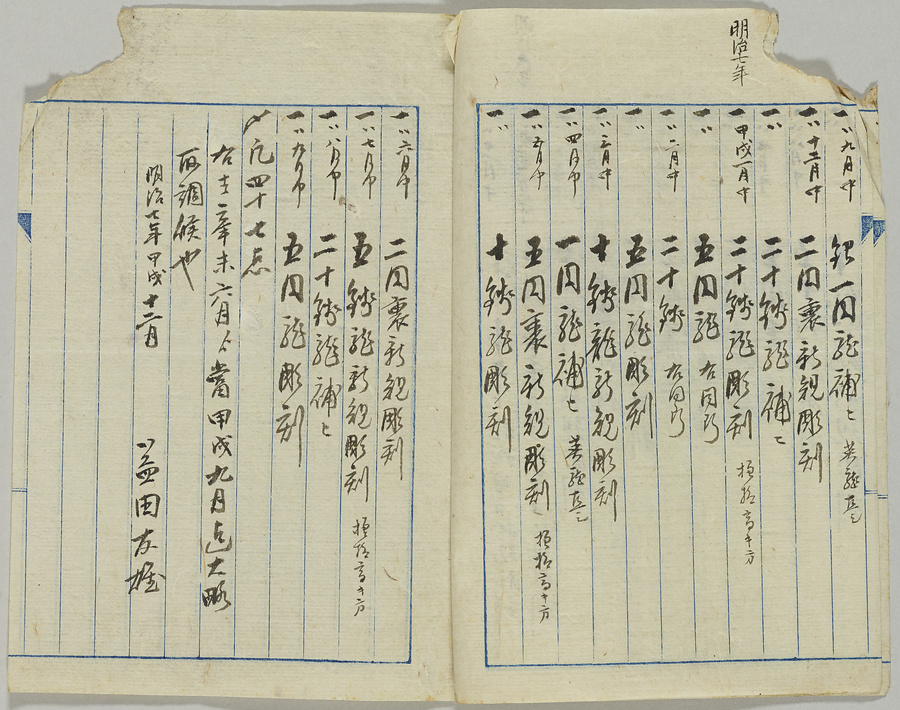 明治七年
一〃九月中 銀一円龍補〻
一〃十二月中 二円裏新規彫刻
一〃 二十銭龍補〻
一甲戌一月中 二十銭龍彫刻
一〃 五円龍 右同断
一〃二月中 二十銭 右同断
一〃 五円龍彫刻
一〃三月中 十銭龍新規彫刻
一〃四月中 一円龍補〻
一〃五月中 五円裏新規彫刻
一〃 十銭龍彫刻
一〃六月中 二円裏新規彫刻
一〃七月中 五銭龍新規彫刻
一〃八月中 二十銭龍補〻
一〃九月中 五円龍彫刻
〆凡四十七忘
右者辛未六月ゟ當甲戌九月迄大略
取調候也
明治七年甲戌十二月
益田友雄